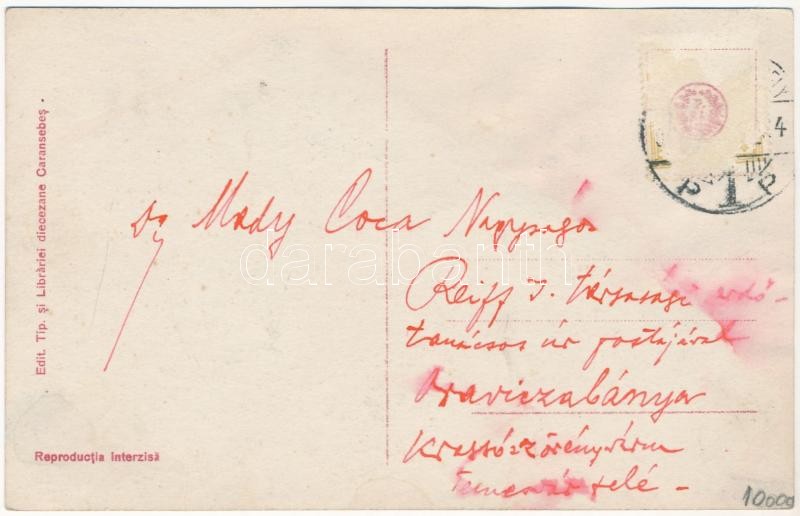 Edit. Tip. și Librăriei diecezane Caransebeș.
Reproducția interzisă
P 1 P
4
darabanth
Mady Coca Nagysága
Reiff I. társasági erdő-
tanácsos úr postájával
Oraviczabánya
Krassószörényvárm
Temesvár felé -
10000